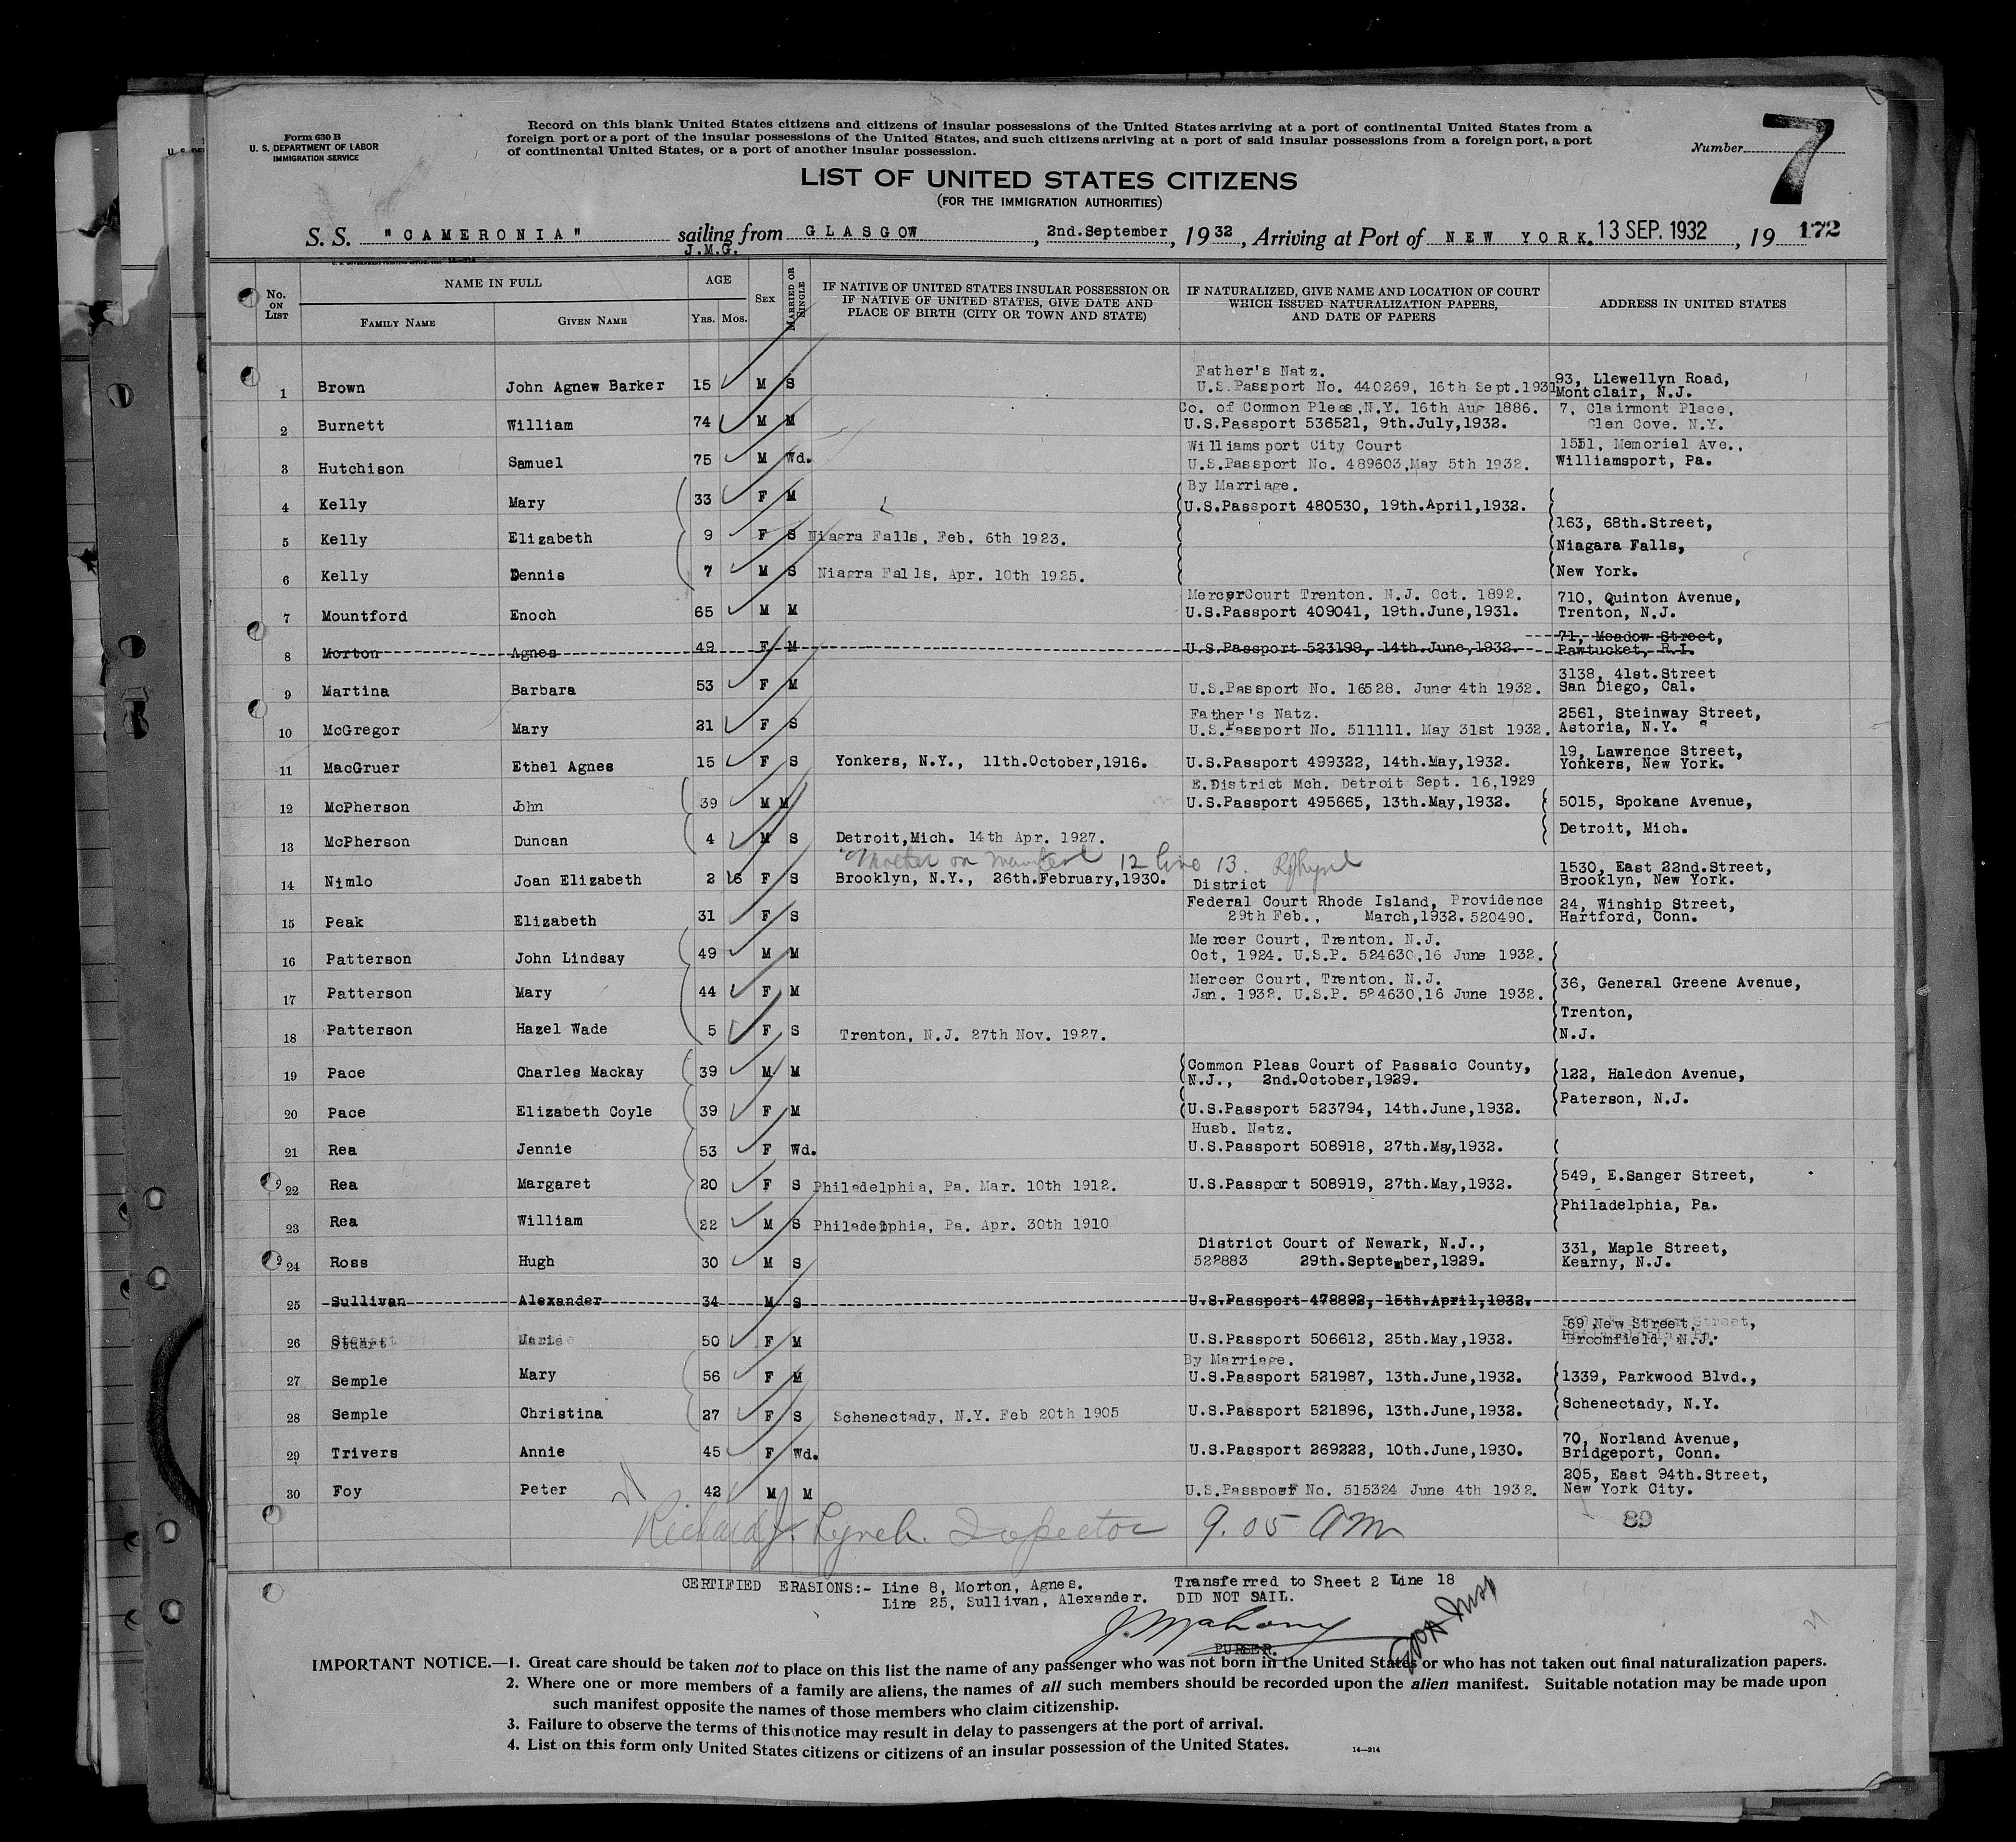 Form 630 B
U. S. DEPARTMENT OF LABOR
IMMIGRATION SERVICE
Record on this blank United States citizens and citizens of insular possessions of the United States arriving at a port of continental United States from a
foreign port or a port of the insular possessions of the United States, and such citizens arriving at a port of said insular possessions from a foreign port, a port
of continental United States, or a port of another insular possession.
Number 7
LIST OF UNITED STATES CITIZENS
(FOR THE IMMIGRATION AUTHORITIES)
S. S. "CAMERONIA" sailing from GLASGOW, 2nd.September, 1932, Arriving at Port of NEW YORK. 13 SEP. 1932, 19 172
J.M.G.
No. ON LIST
NAME IN FULL
FAMILY NAME
GIVEN NAME
AGE
YRS. MOS.
SEX
MARRIED OR SINGLE
IF NATIVE OF UNITED STATES INSULAR POSSESSION OR
IF NATIVE OF UNITED STATES, GIVE DATE AND
PLACE OF BIRTH (CITY OR TOWN AND STATE)
IF NATURALIZED, GIVE NAME AND LOCATION OF COURT
WHICH ISSUED NATURALIZATION PAPERS,
AND DATE OF PAPERS
ADDRESS IN UNITED STATES
Father's Natz.
1 Brown John Agnew Barker 15 M S U.S.Passport No. 440269, 16th Sept.1931 93, Llewellyn Road,
Montclair, N.J.
Co. of Common Pleas,N.Y. 16th Aug 1886. 7, Clairmont Place,
2 Burnett William 74 M M U.S.Passport 536521, 9th.July,1932. Glen Cove. N.Y.
Williamsport City Court 1551, Memoriel Ave.,
3 Hutchison Samuel 75 M Wd. U.S.Passport No. 489603,May 5th 1932. Williamsport, Pa.
By Marriage.
4 Kelly Mary 33 F M U.S.Passport 480530, 19th.April,1932.
163, 68th.Street,
5 Kelly Elizabeth 9 F S Niagra Falls, Feb. 6th 1923. Niagara Falls,
6 Kelly Dennis 7 M S Niagra Falls, Apr. 10th 1925. New York.
Mercer Court Trenton. N.J. Oct. 1892. 710, Quinton Avenue,
7 Mountford Enoch 65 M M U.S.Passport 409041, 19th.June,1931. Trenton, N.J.
71, Meadow Street,
8 Morton Agnes 49 F M U.S.Passport 523199, 14th.June,1932. Pawtucket, R.I.
3138, 41st.Street
9 Martina Barbara 53 F M U.S.Passport No. 16528. June 4th 1932. San Diego, Cal.
Father's Natz. 2561, Steinway Street,
10 McGregor Mary 21 F S U.S.Passport No. 511111. May 31st 1932. Astoria, N.Y.
19, Lawrence Street,
11 MacGruer Ethel Agnes 15 F S Yonkers, N.Y., 11th.October,1916. U.S.Passport 499322, 14th.May,1932. Yonkers, New York.
E.District Mch. Detroit Sept. 16,1929
12 McPherson John 39 M M U.S.Passport 495665, 13th.May,1932. 5015, Spokane Avenue,
13 McPherson Duncan 4 M S Detroit,Mich. 14th Apr. 1927. Detroit, Mich.
Mother on manifest 12 line 13.
1530, East 22nd.Street,
14 Nimlo Joan Elizabeth 2 6 F S Brooklyn, N.Y., 26th.February,1930. Brooklyn, New York.
District
Federal Court Rhode Island, Providence 24, Winship Street,
15 Peak Elizabeth 31 F S 29th Feb., March,1932. 520490. Hartford, Conn.
Mercer Court, Trenton. N.J.
16 Patterson John Lindsay 49 M M Oct, 1924. U.S.P. 524630,16 June 1932.
Mercer Court, Trenton. N.J.
17 Patterson Mary 44 F M Jan. 1932. U.S.P. 524630,16 June 1932. 36, General Greene Avenue,
Trenton,
18 Patterson Hazel Wade 5 F S Trenton, N.J. 27th Nov. 1927. N.J.
19 Pace Charles Mackay 39 M M Common Pleas Court of Passaic County, 122, Haledon Avenue,
N.J., 2nd.October,1929.
Paterson, N.J.
20 Pace Elizabeth Coyle 39 F M U.S.Passport 523794, 14th.June,1932.
Husb. Natz.
21 Rea Jennie 53 F Wd. U.S.Passport 508918, 27th.May,1932.
549, E.Sanger Street,
22 Rea Margaret 20 F S Philadelphia, Pa. Mar. 10th 1912. U.S.Passport 508919, 27th.May,1932.
Philadelphia, Pa.
23 Rea William 22 M S Philadelphia, Pa. Apr. 30th 1910
District Court of Newark, N.J., 331, Maple Street,
24 Ross Hugh 30 M S 522883 29th.September,1929. Kearny, N.J.
25 Sullivan Alexander 34 M S U.S.Passport 478892, 15th.April,1932.
69 New Street,
26 Stuart Marie 50 F M U.S.Passport 506612, 25th.May,1932. Broomfield, N.J.
By Marriage.
27 Semple Mary 56 F M U.S.Passport 521987, 13th.June,1932. 1339, Parkwood Blvd.,
28 Semple Christina 27 F S Schenectady, N.Y. Feb 20th 1905 U.S.Passport 521896, 13th.June,1932. Schenectady, N.Y.
70, Norland Avenue,
29 Trivers Annie 45 F Wd. U.S.Passport 269222, 10th.June,1930. Bridgeport, Conn.
205, East 94th.Street,
30 Foy Peter 42 M M U.S.Passport No. 515324 June 4th 1932. New York City.
Richard J. Lynch. Inspector 9.05 am
89
CERTIFIED ERASIONS:- Line 8, Morton, Agnes. Transferred to Sheet 2 Line 18
Line 25, Sullivan, Alexander. DID NOT SAIL.
J. Mahony
PURSER.
IMPORTANT NOTICE.—1. Great care should be taken not to place on this list the name of any passenger who was not born in the United States or who has not taken out final naturalization papers.
2. Where one or more members of a family are aliens, the names of all such members should be recorded upon the alien manifest. Suitable notation may be made upon
such manifest opposite the names of those members who claim citizenship.
3. Failure to observe the terms of this notice may result in delay to passengers at the port of arrival.
4. List on this form only United States citizens or citizens of an insular possession of the United States.
14—214